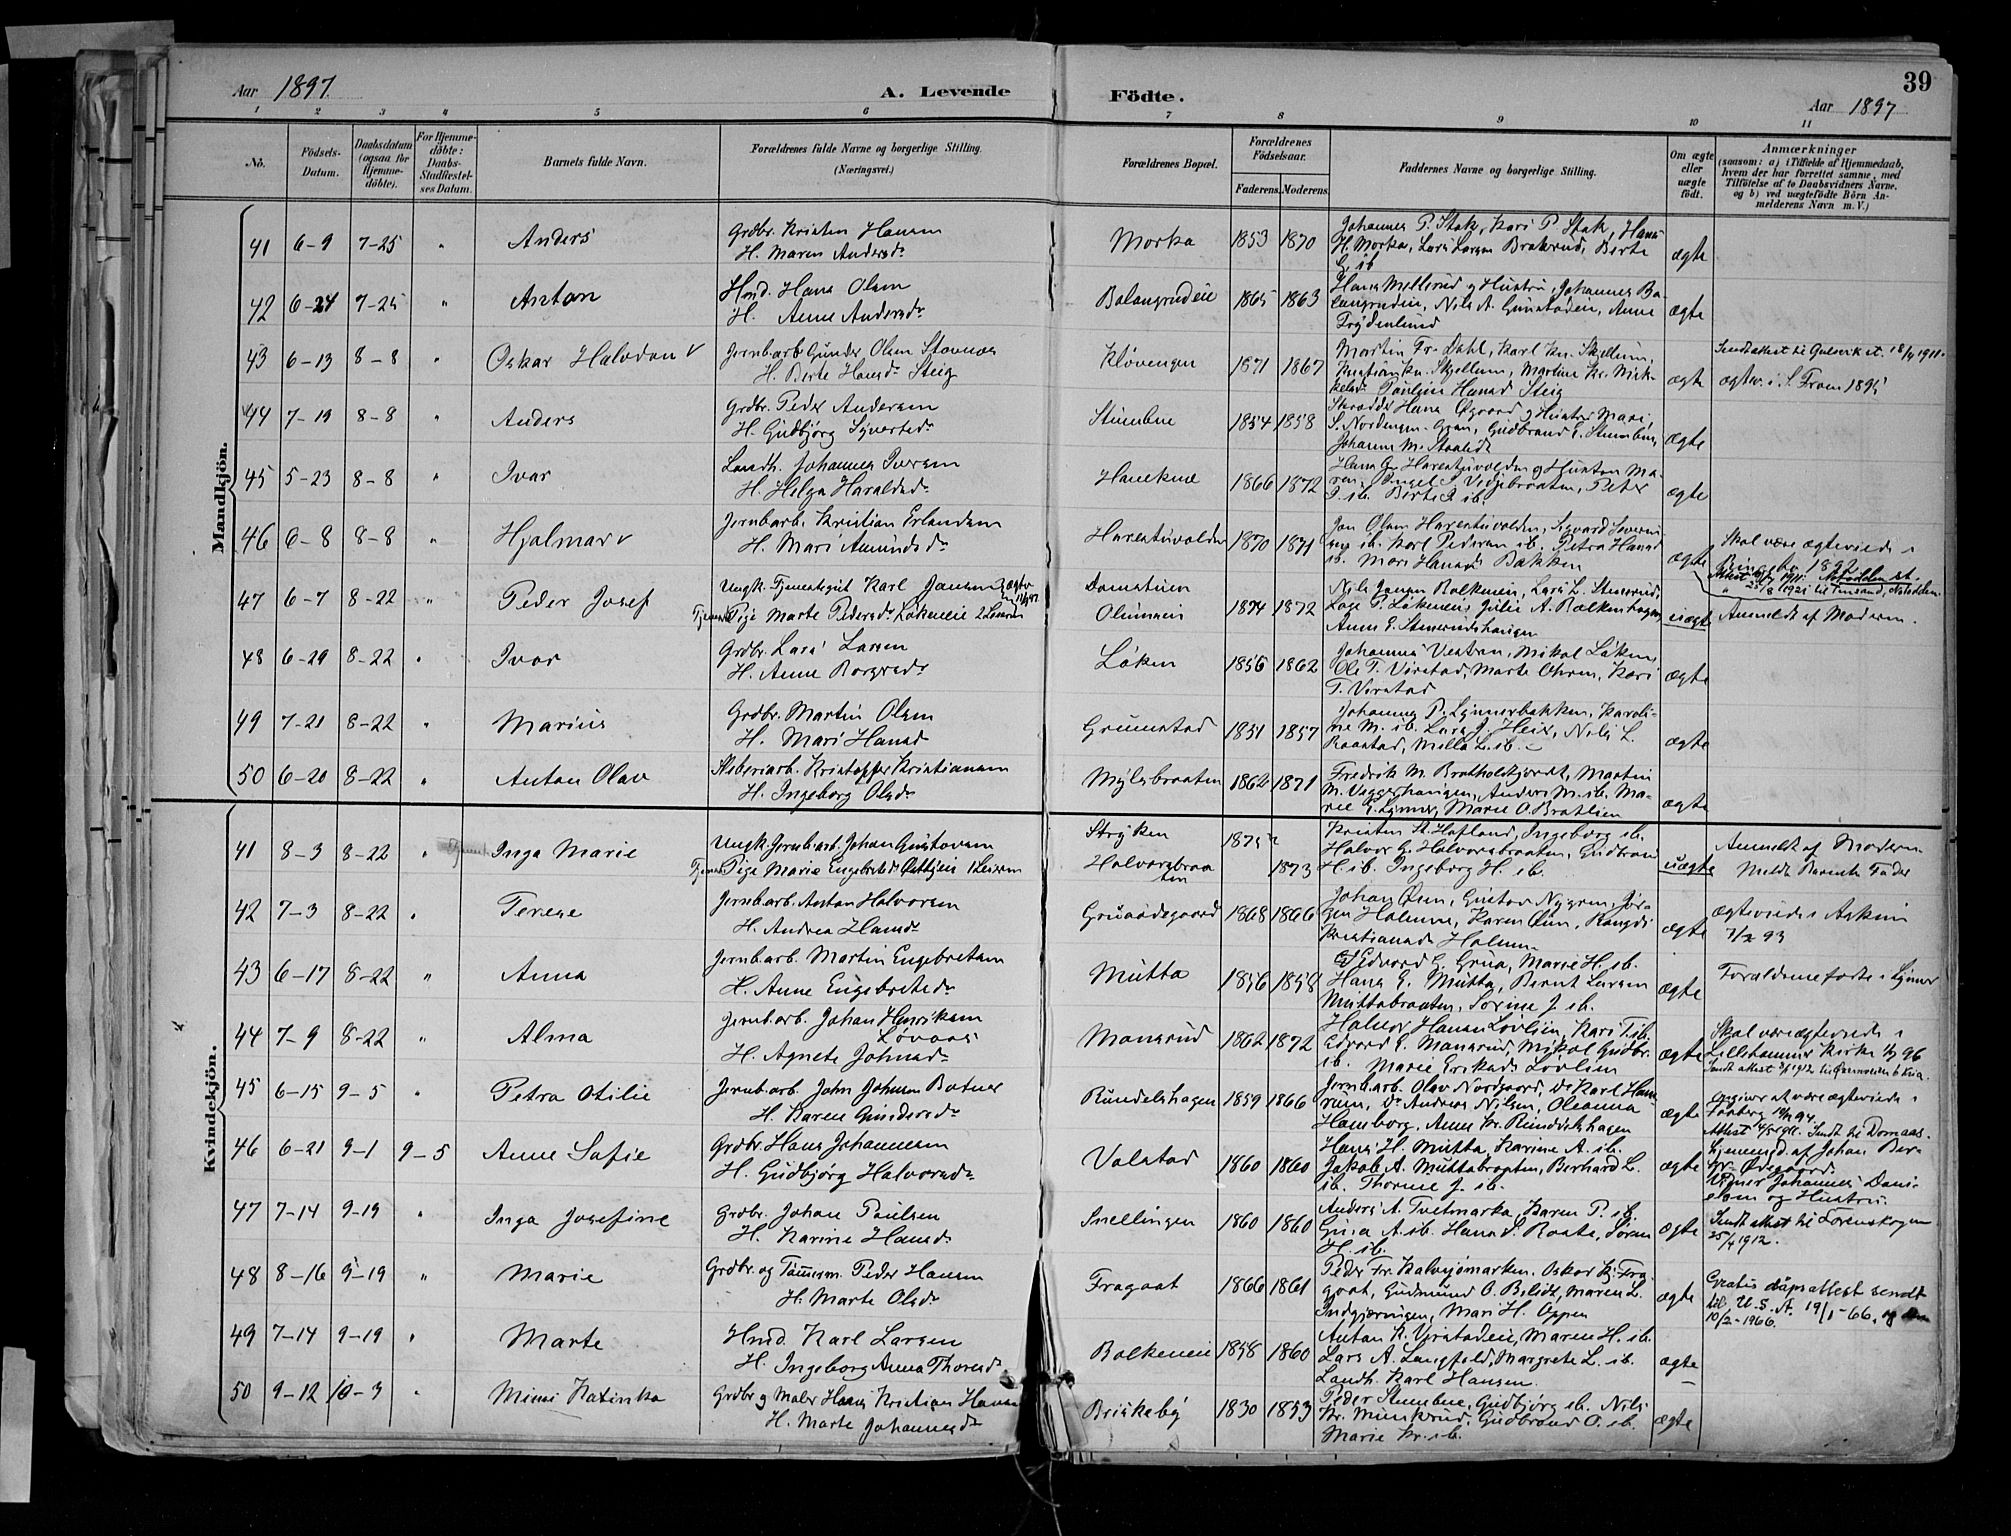 39
Aar 1897. A. Levende Födte. Aar 1897
1 2 3 4 5 6 7 8 9 10 11
No. Födsels-Datum. Daabsdatum (ogsaa for Hjemmedöbte). For Hjemmedöbte: Daabs-Stadfæstelses Datum. Barnets fulde Navn. Forældrenes fulde Navne og borgerlige Stilling. (Næringsvei.) Forældrenes Bopæl. Forældrenes Födselsaar. Faderens. Moderens. Faddernes Navne og borgerlige Stilling. Om ægte eller uægte födt. Anmærkninger (saasom: a) i Tilfælde af Hjemmedaab, hvem der har forrettet samme, med Tilföielse af to Daabsvidners Navne, og b) ved uægtefödte Börn Anmelderens Navn m. V.)
Mandkjön.
41 6-9 7-25 " Anders Grdbr. Kristen Hansen
H. Maren Andersdr. Morka 1853 1870 Johannes P. Stak, Kari P. Stak, Hans
H. Morka, Lars Larsen Brakerud, Berte
ib ægte
42 6-24 7-25 " Anton Hmd. Hans Olsen
H. Anne Andersdr. Balangrudeie 1865 1863 Hans Mellerud og Hustru, Johannes Balangrudeie, Nils A. Gunstadeie, Anne
Frydenlund ægte
43 6-13 8-8 " Oskar Halvdan v Jernb.arb. Gunder Olsen Stavnæs
H. Berte Hansdr. Steig Klövengen 1871 1867 Martin Fr. Dahl, Karl Kr. Skjellum,
Skjellum, Martine Kr.
Hansd. Steig ægte Sendt attest til Gulsvik st. 18/4 1911.
ægtev. i S. Fron 1895
44 7-19 8-8 " Anders Grdbr. Peder Andersen
H. Gudbjörg Syversdr. Stumbne 1854 1858 Skrædder Hans Øgaard og Hustru Mari,
S. Nordengen Gran, Gudbrand E. Stumbne,
Johanne M. ægte
45 5-23 8-8 " Ivar Landh. Johannes Iversen
H. Helga Haraldsdr. Hanekne 1866 1872 Hans G. Harestuvolden og Hustru Maren, Peter
ib. Berte ib. ægte
46 6-8 8-8 " Hjalmar v Jernb.arb. Kristian Erlandsen
H. Mari Amundsdr. Harestuvolden 1870 1871 Jon Olsen Harestuvolden, Sigvard Severinsen ib. Karl Pedersen ib. Petra Hansd.
ib. Mari Hansd. Bakken ægte Skal være ægteviede i
Ringebu 1892
47 6-7 8-22 " Peder Josef Ungk. Tjenestegut Karl Jansen
Tjeneste Pige Marte Pedersdr. Lökeneie 2 Leierm Olimseie 1874 1872 Nils Jansen Balkeneie,
P. Lökeneie, Julie A.
Anne E. uægte Anmeldt af Moderen.
48 6-29 8-22 " Ivar Grdbr. Lars Larsen
H. Anne Borgersdr. Löken 1856 1862 Johannes Vestern, Mikal Löken,
Ole T. Virstad, Marte Ohren, Kari
T. Virstad ægte
49 7-21 8-22 " Marius Grdbr. Martin Olsen
H. Mari Hansd. Grumstad 1851 1857 Johannes P. Lynnerbakken, Karoline M. ib. Lars J. Heie, Nils L.
Raastad, Mella L. ib. ægte
50 6-20 8-22 " Anton Olav Sliberiarb. Kristoffer Kristiansen
H. Ingeborg Olsdr. Mylsbraaten 1862 1871 Fredrik M. Bratholtkjernet, Martin
M. Veggerhaugen, Anders M. ib. Marie G. Lynner, Marie O. Bratlien ægte
Kvindekjön.
41 8-3 8-22 " Inga Marie Ungk. Jernb.arb. Johan Gustavsen
Tjeneste Pige Marie Engebretsdr. 1 Leierm Stryken
Halvorsbraaten 1875 ? 1873 Kristen St. Hafland, Ingeborg ib.
Halvor G. Halvorsbraaten, Gudbrand
H. ib. Ingeborg H. ib. uægte Anmeldt af Moderen.
Meldt Barnets Fader
42 7-3 8-22 " Terese Jernb.arb. Anton Halvorsen
H. Andrea Hansdr. Gruaödegaard 1868 1866 Johan Øien, Gustav Nygren, Jörgen Holmen, Karen Øien, Rangdi
Kristiansd. Holmen ægte Ægteviede i Askim
7/2 93
43 6-17 8-22 " Anna Jernb.arb. Martin Engebretsen
H. Anne Engebretsdr. Mutta 1856 1858 Edvard G. Grua, Marie H. ib.
Hans E. Mutta, Bernt Larsen
Muttabraaten, Sörine J. ib. ægte Forældrene födte i Lynner
44 7-9 8-22 " Alma Jernb.arb. Johan Henriksen
Lövaas
H. Agnete Johnsdr. Monserud 1862 1872 Halvor Hansen Lövlien, Kari T. ib.
Edvard E. Monserud, Mikal Gudbr.
ib. Marie Eriksdr. Lövlien ægte Skal være ægteviede i
Lillehammer Kirke 96
45 6-15 9-5 " Petra Otilie Jernb.arb. John Johnsen Botner
H. Karen Gundersdr. Rundelshagen 1859 1866 Jernb.arb. Olav Nordgaard, do Karl Hansen, do Andreas Nilsen, Oleanna
Hamborg, Anne Kr. Rundelshagen ægte Opgiver at være ægteviede i
Faaberg 94.
Attest 4/5 1911. Sendt til Domaas.
46 6-21 9-1 9-5 Anne Sofie Grdbr. Hans Johannesen
H. Gudbjörg Halvorsdr. Volstad 1860 1860 Hans H. Mutta, Karine A. ib.
Jakob A. Muttabraaten, Berhard L.
ib. Thorine J. ib. ægte Hjemmed. af Johan Berger Ødegaard.
Vidner Johannes Danielsen og Hustru.
47 7-14 9-19 " Inga Josefine Grdbr. Johan Paulsen
H. Karine Hansd. Snellingen 1860 1860 Anders A. Tveitmarka, Karen P. ib.
A. ib. Hans S. Raste, Sören
H. ib. ægte Sendt attest til Lörenskogen
25/4 1912.
48 8-16 9-19 " Marie Grdbr. og Tömmerm. Peder Hansen
H. Marte Olsdr. Fragaat 1866 1861 Peder Fr. Kalvsjömarken, Oskar Kj. Fragaat, Gudmund O. Belidt, Maren L.
Mari H. Oppen ægte Gratis dåpsattest sendt
til U.S.A. 19/1-66, og
10/2-1966.
49 7-14 9-19 " Marte Hmd. Karl Larsen
H. Ingeborg Anna Thoresdr. Balkeneie 1858 1860 Anton K. Virstadeie, Maren H. ib.
Lars A. Langfold, Margrete L. ib.
Landh. Karl Hansen. ægte
50 9-12 10-3 " Mimi Katinka Grdbr. og Maler Hans Kristian Hansen
H. Marte Johannesdr. Briskeby 1830 1853 Peder Stumbne, Gudbjörg ib. Nils
Kr. Munkrud, Gudbrand O. ib.
Marie Kr. ib. ægte